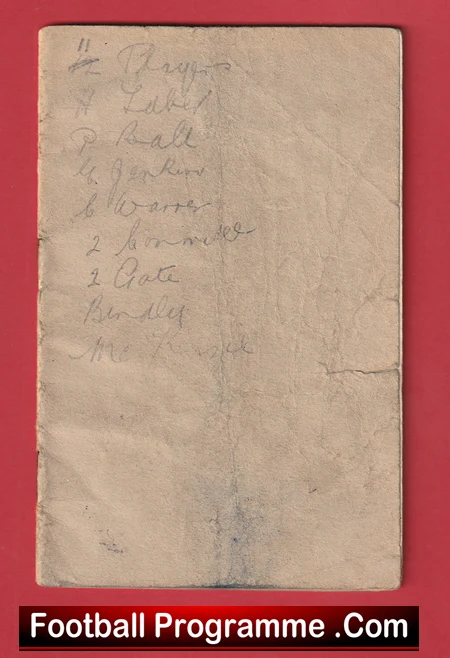 11
Players
P Ball
G. Jenkins
C Warner
2 Committee
2 Gate
Bindley
Football Programme .Com